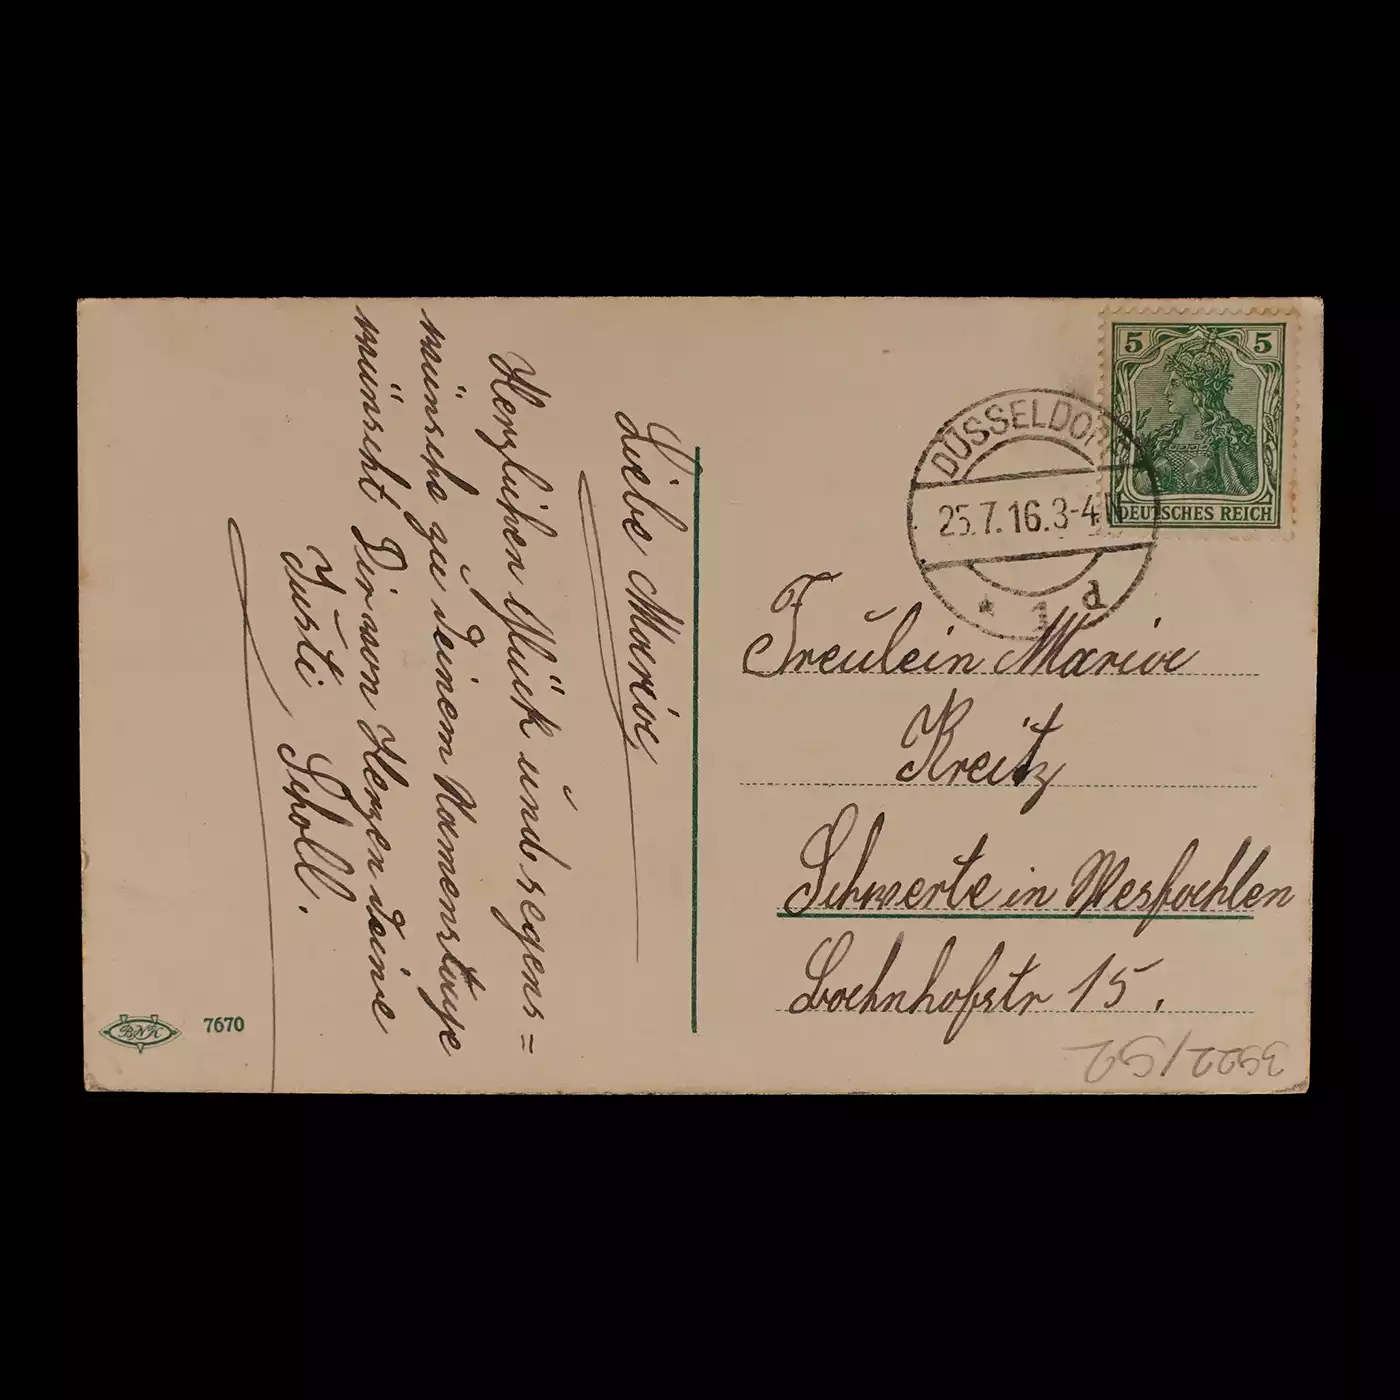 Liebe Marie,
Herzlichen Glück und segens=
wünsche zu Deinem Namenstage
wünscht Dir von Herzen Deine
Justi Scholl.
5 5
DEUTSCHES REICH
DÜSSELDORF
25.7.16.3-4N
* 1 d
Fräulein Marie
Kreitz
Schwerte in Wesfahlen
Bahnhofstr 15.
BNK 7670
3922/52